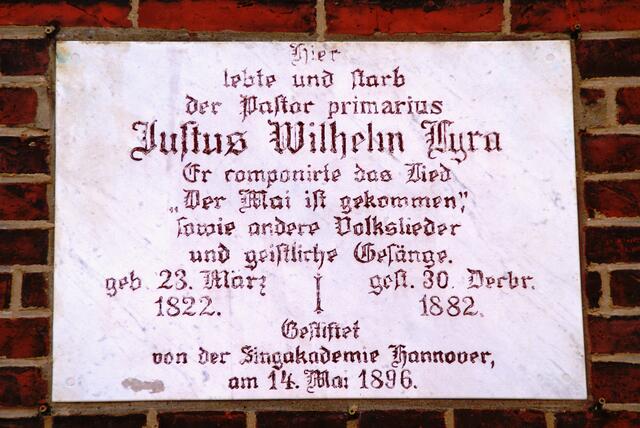 Hier
lebte und starb
der Pastor primarius
Justus Wilhelm Lyra
Er componirte das Lied
„Der Mai ist gekommen”,
sowie andere Volkslieder
und geistliche Gesänge.
geb. 23. März gest. 30. Decbr.
1822. 1882.
Gestiftet
von der Singakademie Hannover,
am 14. Mai 1896.